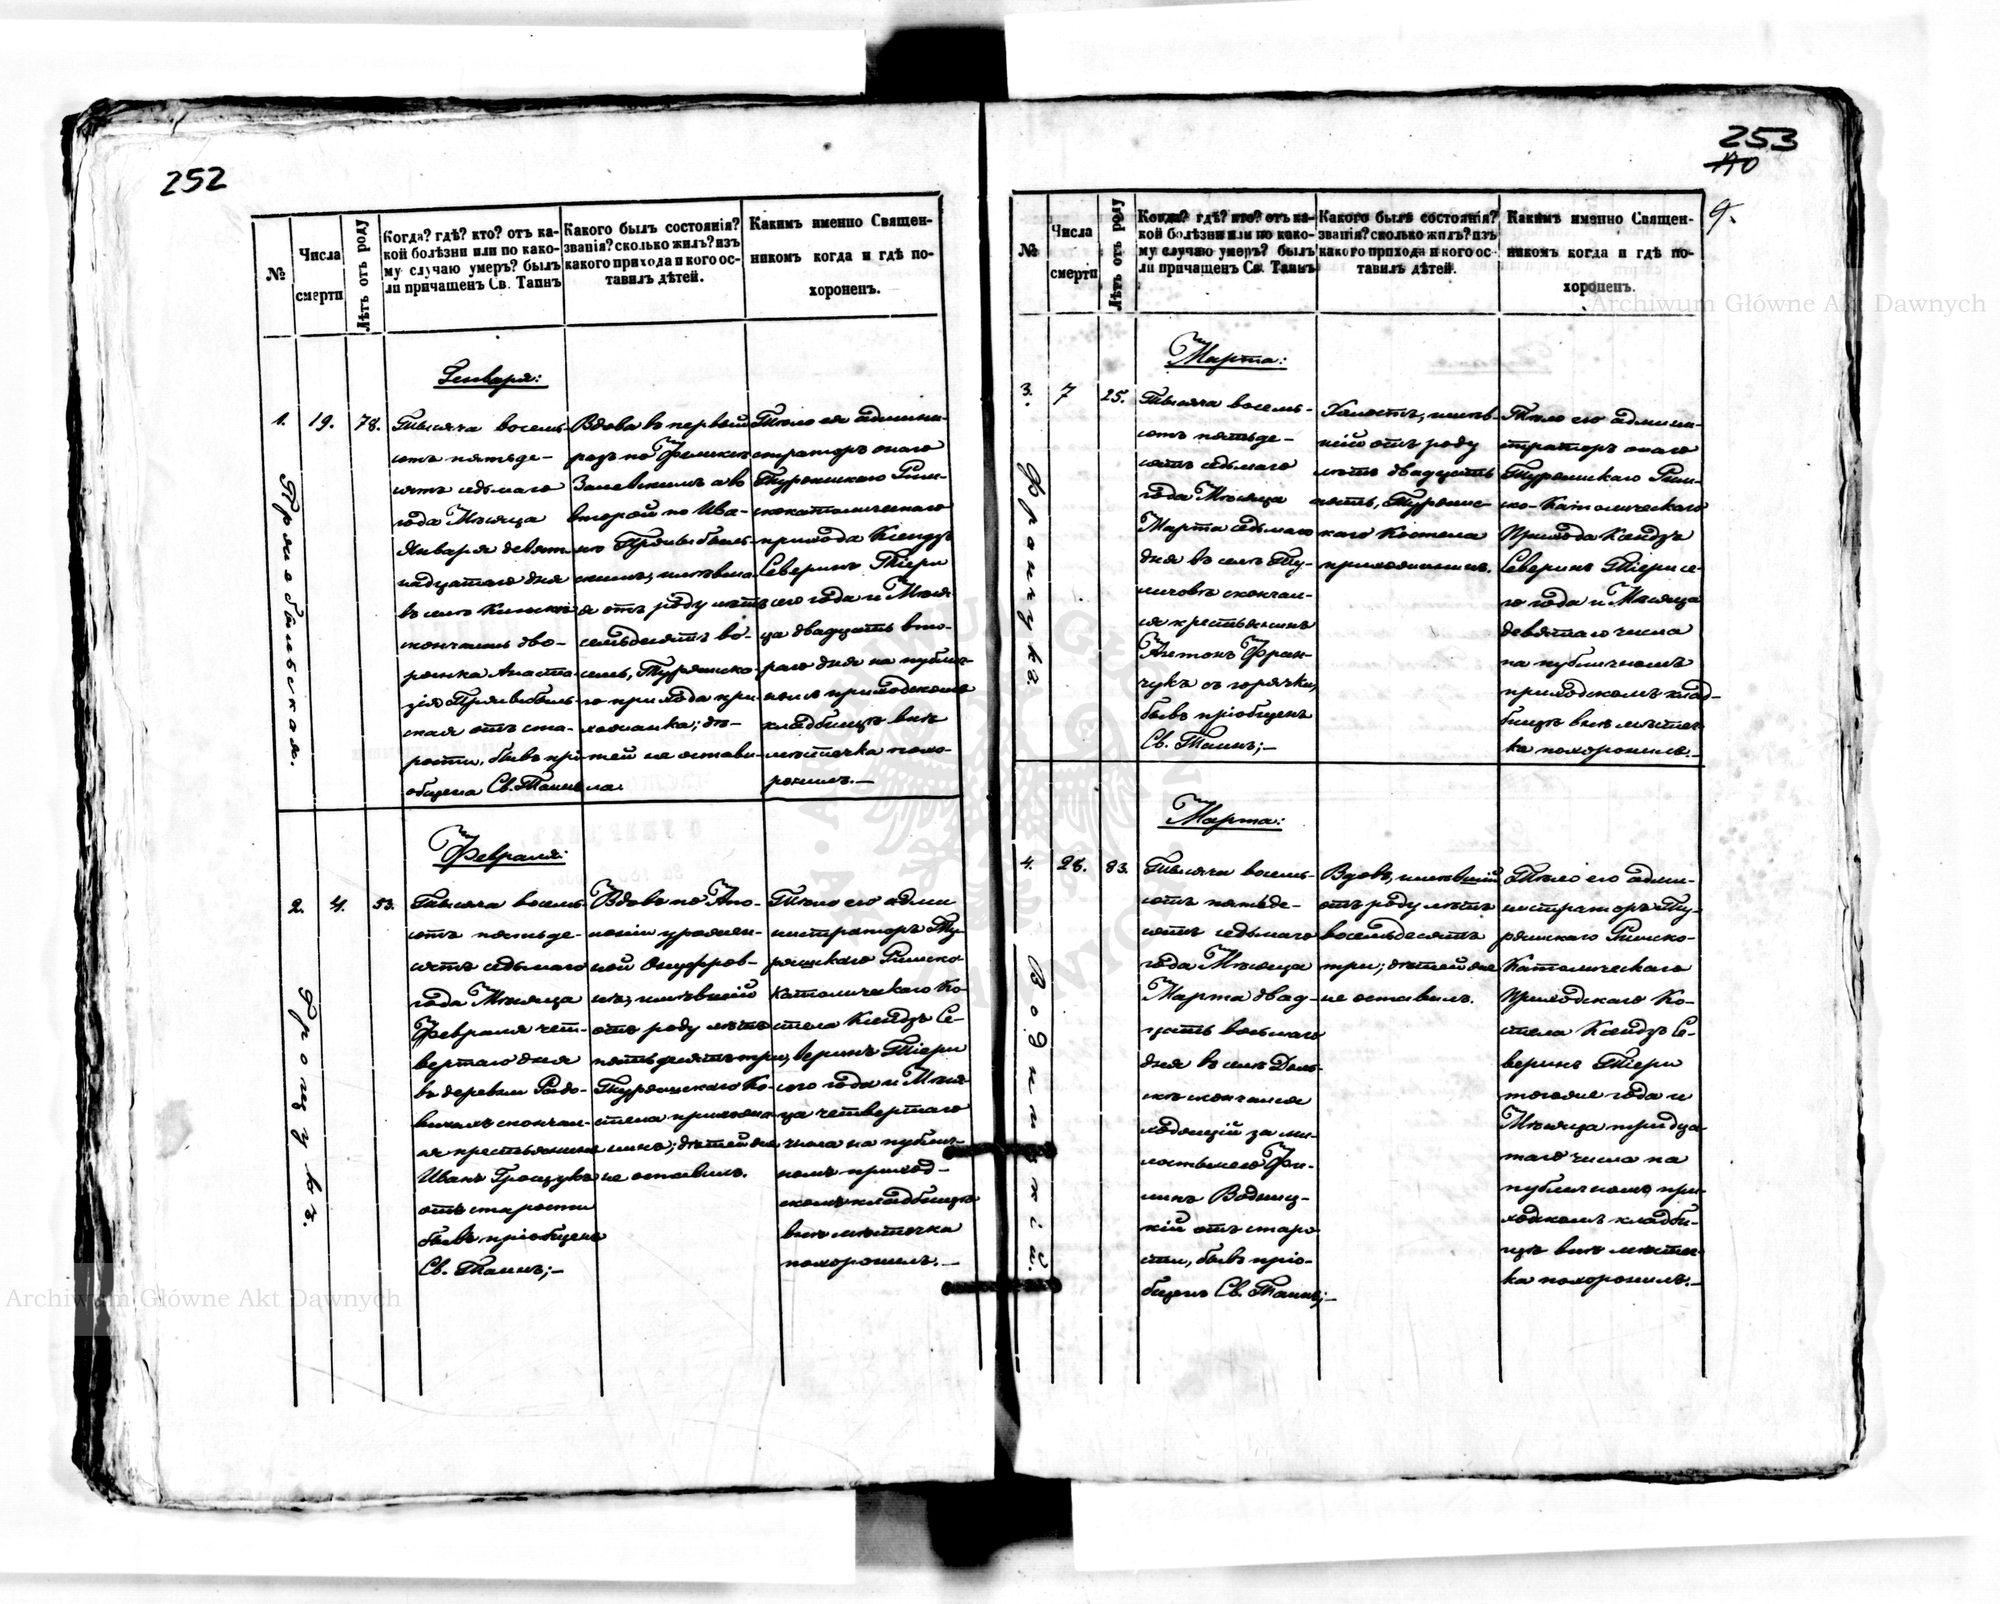 252
№
Числа
смерти
Лѣтъ отъ роду
Когда? гдѣ? кто? отъ ка-
кой болѣзни или по како-
му случаю умеръ? былъ
ли причащенъ Св. Таинъ
Какого былъ состоянія?
званія? сколько жилъ? изъ
какого прихода и кого ос-
тавилъ дѣтей.
Какимъ именно Священ-
никомъ когда и гдѣ по-
хороненъ.
Генваря:
1.
19.
78.
Тысяча восемь-
сотъ пятьде-
сятъ седьмаго
года Мѣсяца
Января девят-
надцатаго дня
въ селѣ
скончалась дво-
рянка Анаста-
зія
ская отъ ста-
рости, бывъ прі-
общена Св. Таинъ
Вдова въ первый
разъ по Феликсѣ
Залевскимъ а во
второй по Ива-
нѣ
скимъ, имѣвша-
я отъ роду лѣтъ
семьдесятъ во-
семь, Турійска-
го прихода при-
хожанка; дѣ-
тей не остави-
ла.
Тѣло ея админи-
страторъ онаго
Турійскаго Рим-
скокатолическаго
прихода Ксендзъ
Северинъ Тіери
сего года и Мѣся-
ца двадцать вто-
раго дня на публич-
номъ приходскомъ
кладбищѣ внѣ
мѣстечка похо-
ронилъ.—
Февраля:
2.
4.
53.
Грощукъ.
Тысяча восемь-
сотъ пятьде-
сятъ седьмаго
года Мѣсяца
Февраля чет-
вертаго дня
въ деревни Радо-
вичахъ скончал-
ся крестьянинъ
Иванъ Грощукъ
отъ старости
бывъ пріобщенъ
Св. Таинъ;—
Вдовъ по Апо-
лоніи урожен-
ной Онуфріев-
нѣ, имѣвшій
отъ роду лѣтъ
пятьдесятъ три,
Турійскаго Ко-
стела прихожа-
нинъ; дѣтей
не оставилъ.
Тѣло его адми-
нистраторъ Ту-
рійскаго Римско
католическаго Ко-
стела Ксендзъ Се-
веринъ Тіери
сего года и Мѣся-
ца четвертаго
числа на публич-
номъ приход-
скомъ кладбищѣ
внѣ мѣстечка
похоронилъ.—
253
170
9.
№
Числа
смерти
Лѣтъ отъ роду
Когда? гдѣ? кто? отъ ка-
кой болѣзни или по како-
му случаю умеръ? былъ
ли причащенъ Св. Таинъ
Какого былъ состоянія?
званія? сколько жилъ? изъ
какого прихода и кого ос-
тавилъ дѣтей.
Какимъ именно Священ-
никомъ когда и гдѣ по-
хороненъ.
Марта:
3.
7
25.
Франчукъ.
Тысяча восемь-
сотъ пятьде-
сятъ седьмаго
года Мѣсяца
Марта седьмаго
дня въ селѣ Ту-
личовѣ скончал-
ся крестьянинъ
Антонъ Фран-
чукъ съ горячки,
бывъ пріобщенъ
Св. Таинъ;—
Холостъ, имѣв-
шій отъ роду
лѣтъ двадцать
пять, Турійс-
каго Костела
прихожанинъ.
Тѣло его админи-
страторъ онаго
Турійскаго Рим-
ско-Католическаго
Прихода Ксендзъ
Северинъ Тіери се-
го года и Мѣсяца
девятаго числа
на публичномъ
приходскомъ клад-
бищѣ внѣ мѣстеч-
ка похоронилъ.—
Марта:
4.
28.
83.
Водницкій.
Тысяча восемь-
сотъ пятьде-
сятъ седьмаго
года Мѣсяца
Марта двад-
цать восьмаго
дня въ селѣ Доль-
скѣ скончался
ходящій за ми-
лостынею Фи-
липъ Водниц-
кій отъ старо-
сти, бывъ пріо-
бщенъ Св. Таинъ;—
Вдовъ, имѣвшій
отъ роду лѣтъ
восемьдесятъ
три; дѣтей
не оставилъ.
Тѣло его адми-
нистраторъ Ту-
рійскаго Римско-
Католическаго
Приходскаго Ко-
стела Ксендзъ Се-
веринъ Тіери
тогоже года и
Мѣсяца тридца-
таго числа на
публичномъ при-
ходскомъ кладби-
щѣ внѣ мѣстеч-
ка похоронилъ.—
Archiwum Główne Akt Dawnych
Archiwum Główne Akt Dawnych